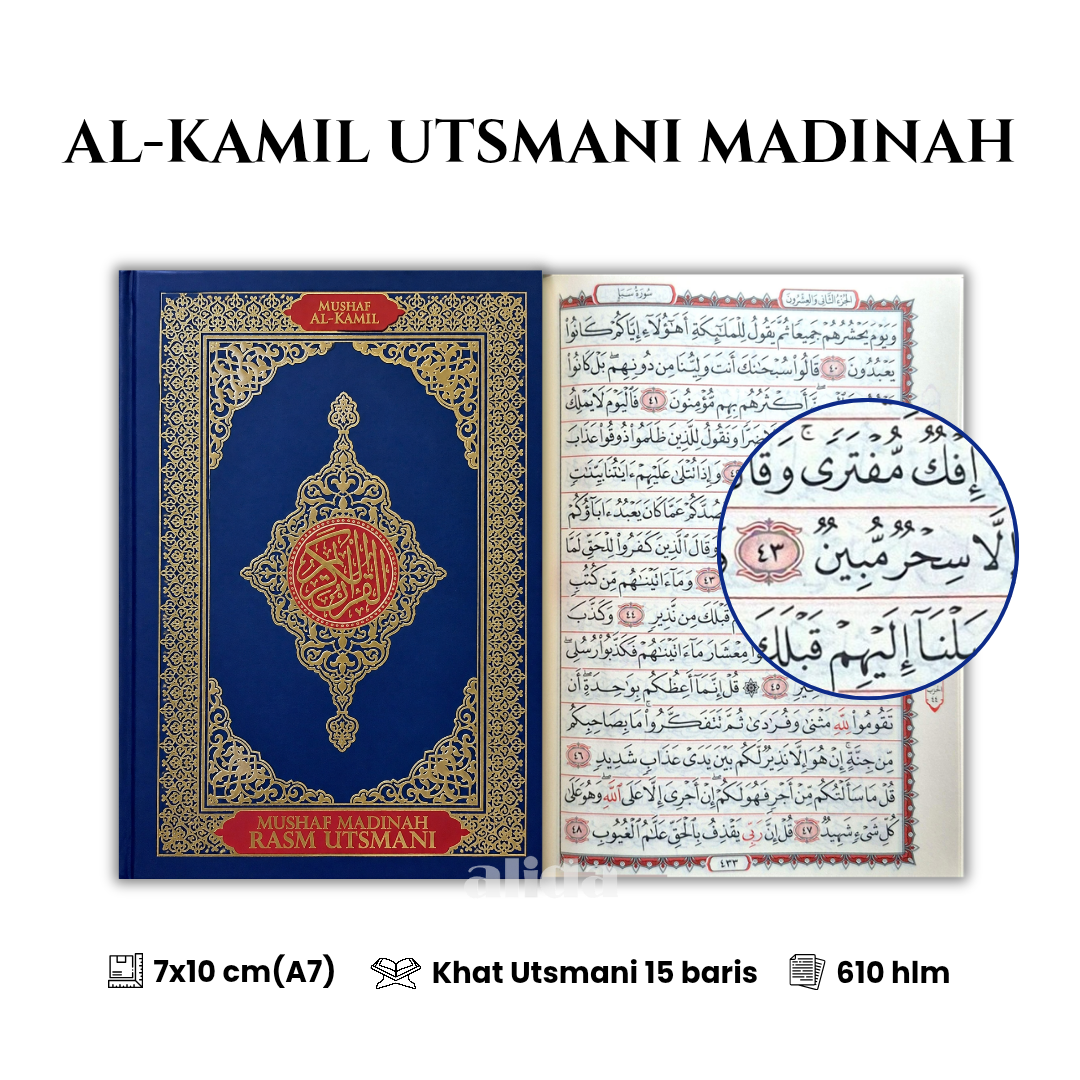 AL-KAMIL UTSMANI MADINAH
MUSHAF
AL-KAMIL
القرآن الكريم
MUSHAF MADINAH
RASM UTSMANI
الجزء الثاني والعشرون
سورة سبإ
وَيَوْمَ يَحْشُرُهُمْ جَمِيعًا ثُمَّ يَقُولُ لِلْمَلَٰٓئِكَةِ أَهَٰٓؤُلَآءِ إِيَّاكُمْ كَانُوا۟
يَعْبُدُونَ ٤٠ قَالُوا۟ سُبْحَٰنَكَ أَنتَ وَلِيُّنَا مِن دُونِهِم ۖ بَلْ كَانُوا۟
أَكْثَرُهُم بِهِم مُّؤْمِنُونَ ٤١ فَٱلْيَوْمَ لَا يَمْلِكُ
ضَرًّا وَنَقُولُ لِلَّذِينَ ظَلَمُوا۟ ذُوقُوا۟ عَذَابَ
وَإِذَا تُتْلَىٰ عَلَيْهِمْ ءَايَٰتُنَا بَيِّنَٰتٍ
عَمَّا كَانَ يَعْبُدُ ءَابَآؤُكُمْ
وَقَالَ ٱلَّذِينَ كَفَرُوا۟ لِلْحَقِّ لَمَّا
٤٣ وَمَآ ءَاتَيْنَٰهُم مِّن كُتُبٍ
قَبْلَكَ مِن نَّذِيرٍ ٤٤ وَكَذَّبَ
مِعْشَارَ مَآ ءَاتَيْنَٰهُمْ فَكَذَّبُوا۟ رُسُلِى ۖ
٤٥ ۞ قُلْ إِنَّمَآ أَعِظُكُم بِوَٰحِدَةٍ ۖ أَن
تَقُومُوا۟ لِلَّهِ مَثْنَىٰ وَفُرَٰدَىٰ ثُمَّ تَتَفَكَّرُوا۟ ۚ مَا بِصَاحِبِكُم
مِّن جِنَّةٍ ۚ إِنْ هُوَ إِلَّا نَذِيرٌ لَّكُم بَيْنَ يَدَىْ عَذَابٍ شَدِيدٍ ٤٦
قُلْ مَا سَأَلْتُكُم مِّنْ أَجْرٍ فَهُوَ لَكُمْ ۖ إِنْ أَجْرِىَ إِلَّا عَلَى ٱللَّهِ ۖ وَهُوَ عَلَىٰ
كُلِّ شَىْءٍ شَهِيدٌ ٤٧ قُلْ إِنَّ رَبِّى يَقْذِفُ بِٱلْحَقِّ عَلَّٰمُ ٱلْغُيُوبِ ٤٨
٤٣٣
إِفْكٌ مُّفْتَرًى ۚ وَقَا
إِلَّا سِحْرٌ مُّبِينٌ ٤٣
سَلْنَآ إِلَيْهِمْ قَبْلَكَ
alida
7x10 cm(A7)
Khat Utsmani 15 baris
610 hlm